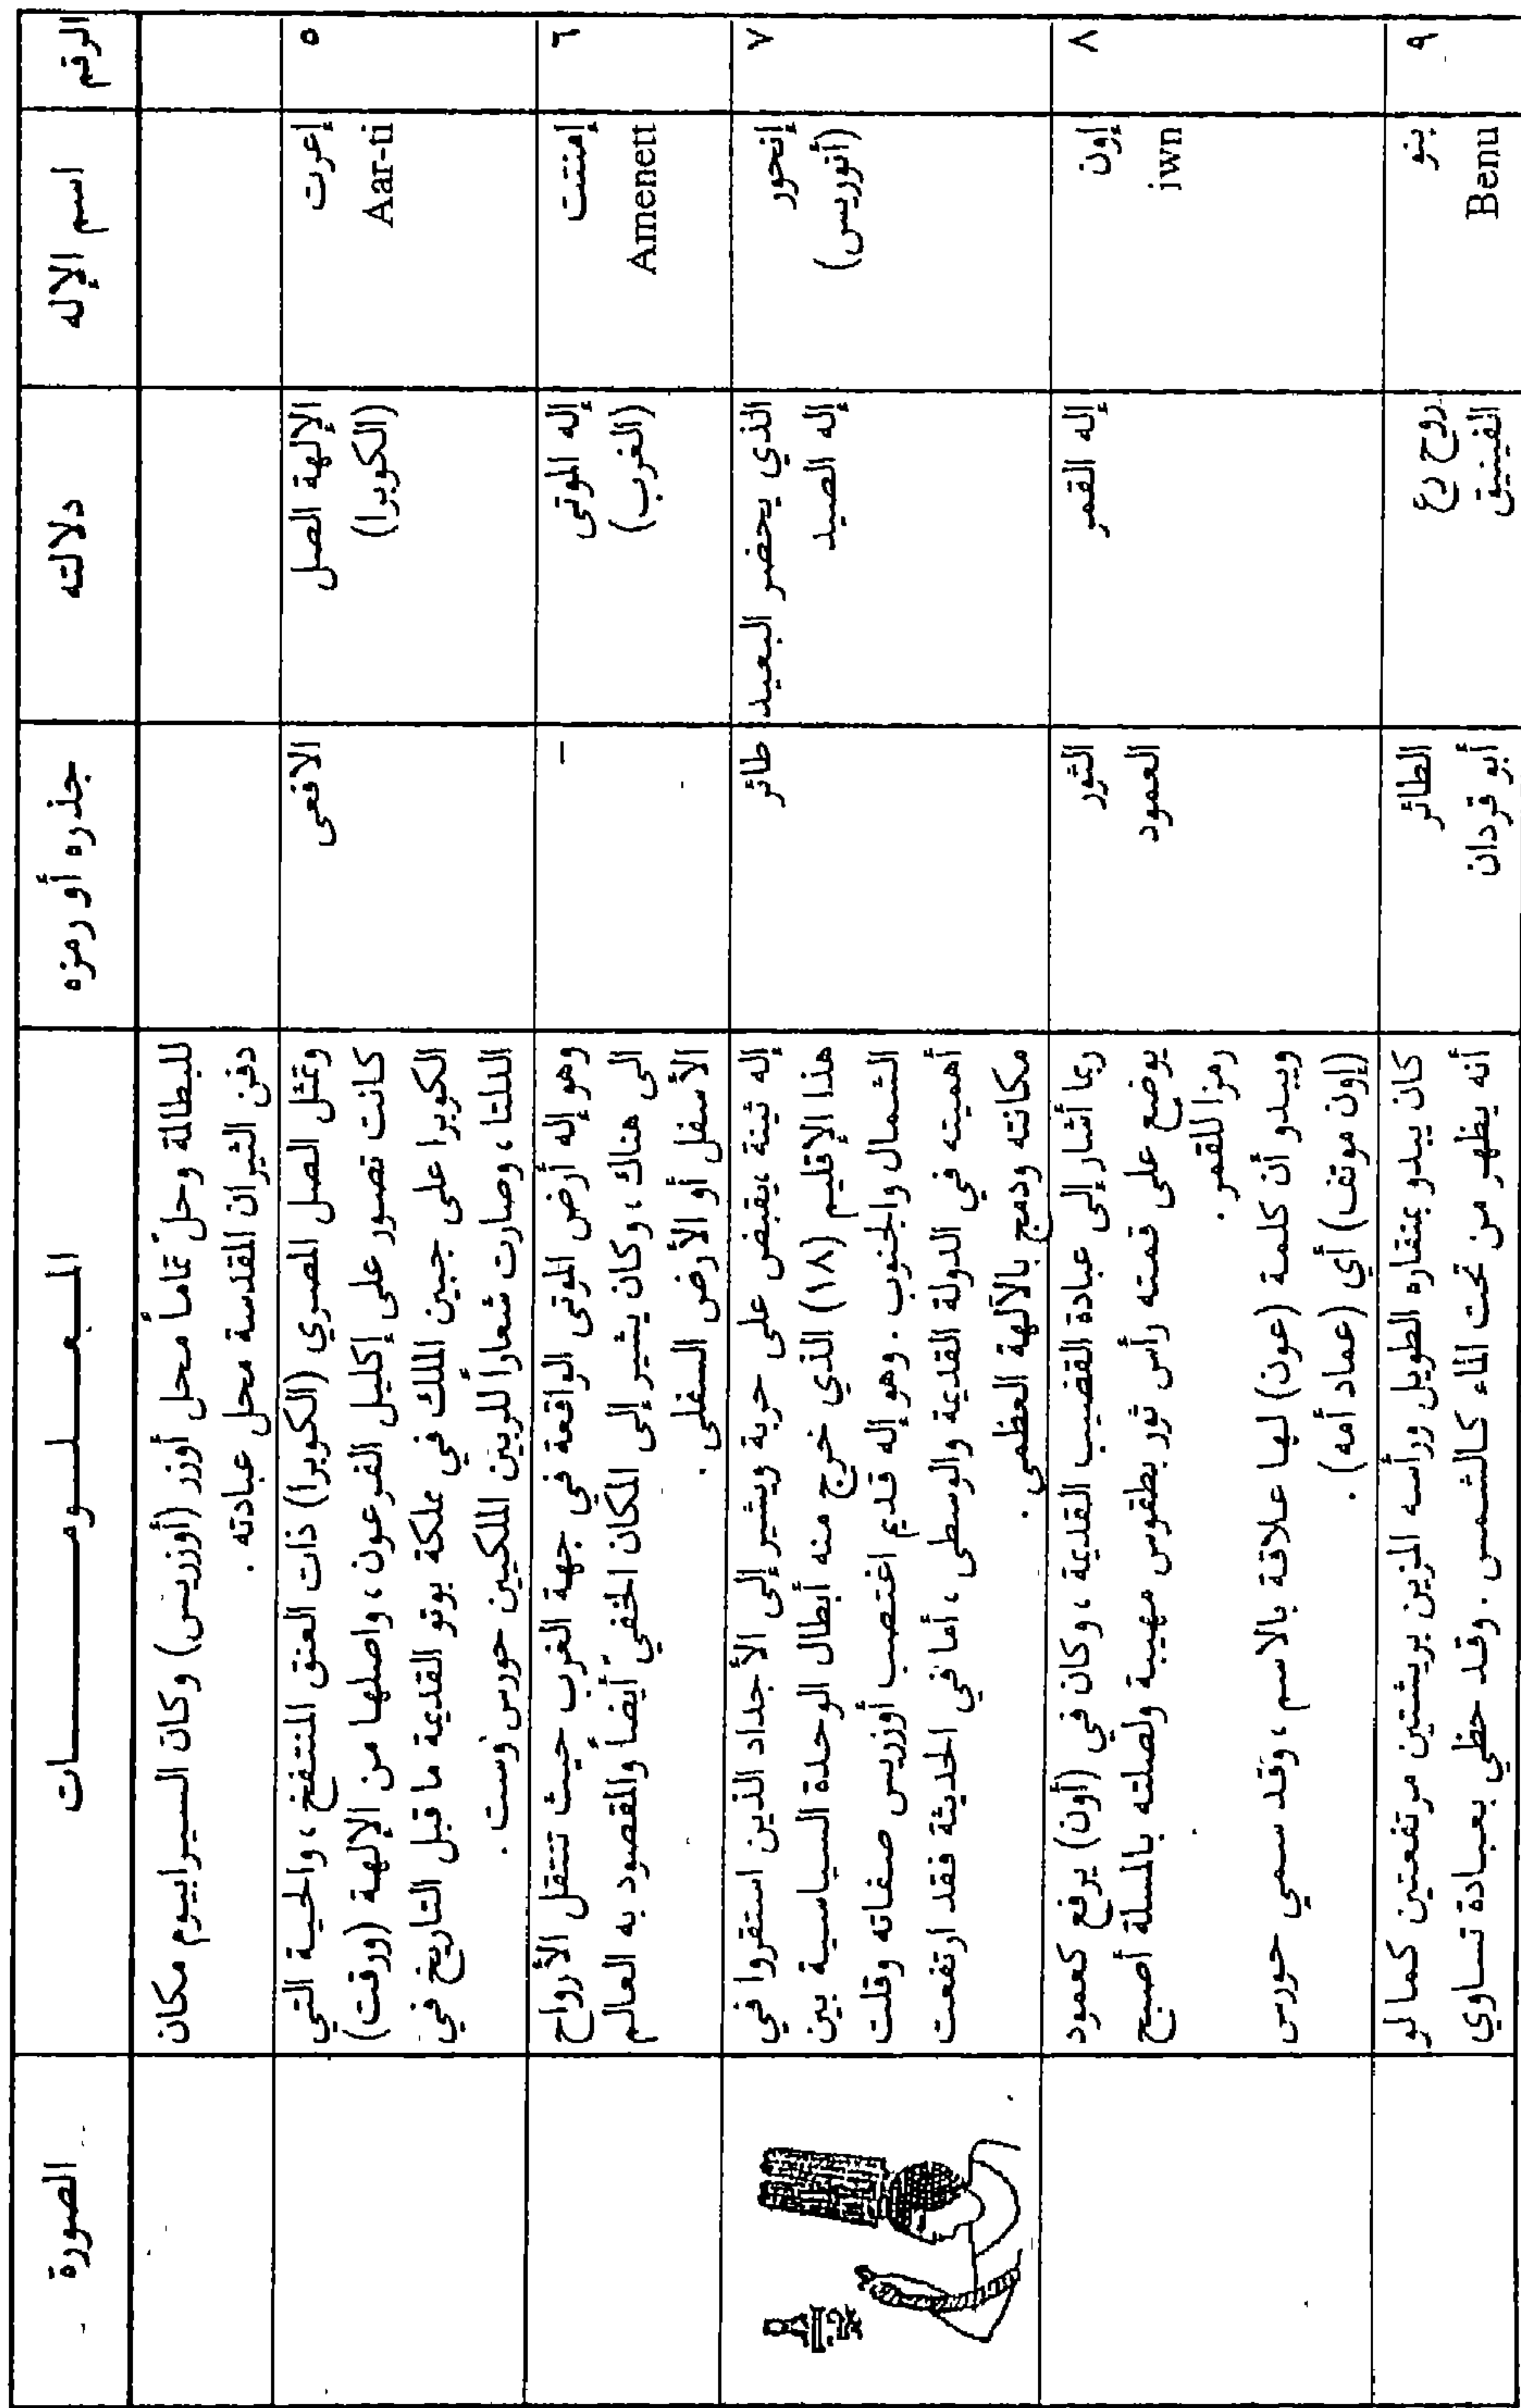 الرقم
اسم الإله
دلالته
جذره أو رمزه
المعلومات
الصورة
للبطالمة وحلّ تماماً محل أوزر (أوزريس) وكان السيرابيوم مكان
دفن الثيران المقدسة محل عبادته .
٥
إعرت
Aar-ti
الإلهة الصل
(الكوبرا)
الافعى
وتمثل الصل المصري (الكوبرا) ذات العنق المنتفخ ، والحية التي
كانت تصور على إكليل الفرعون ، واصلها من الإلهة (ووقت)
الكوبرا على جبين الملك في مملكة بوتو القديمة ما قبل التاريخ في
الدلتا ، وصارت شعاراً للربين الملكيين حورس وست .
٦
إمنتت
Amenett
إله الموتى
(الغرب)
–
وهو إله أرض الموتى الواقعة في جهة الغرب حيث تنتقل الأرواح
الى هناك ، وكان يشير إلى المكان الخفيّ أيضاً والمقصود به العالم
الأسفل أو الأرض السفلى .
٧
إنحور
(أنوريس)
الذي يحضر البعيد
إله الصيد
طائر
إله ثينة ،يقبض على حربة ويشير إلى الأجداد الذين استقروا في
هذا الإقليم (١٨) الذي خرج منه أبطال الوحدة السياسية بين
الشمال والجنوب . وهو إله قديم اغتصب أوزريس صفاته وقلت
أهميته في الدولة القديمة والوسطى ، أما في الحديثة فقد ارتفعت
مكانته ودمج بالآلهة العظمى .
٨
إون
iwn
إله القمر
الثور
العمود
ربما أشار إلى عبادة القضيب القديمة ، وكان في (أون) يرفع كعمود
يوضع على قمته رأس ثور بطقوس مهيبة ولصلته بالمسلة أصبح
رمزا للقمر .
ويبدو أن كلمة (عون) لها علاقة بالاسم ، وقد سمي حورس
(إون موتف) أي (عماد أمه) .
٩
بنو
Benu
روح رع
الفينيق
الطائر
أبو قردان
كان يبدو بمنقاره الطويل ورأسه المزين بريشتين مرتفعتين كما لو
أنه يظهر من تحت الماء كالشمس . وقد حظي بعبادة تساوي